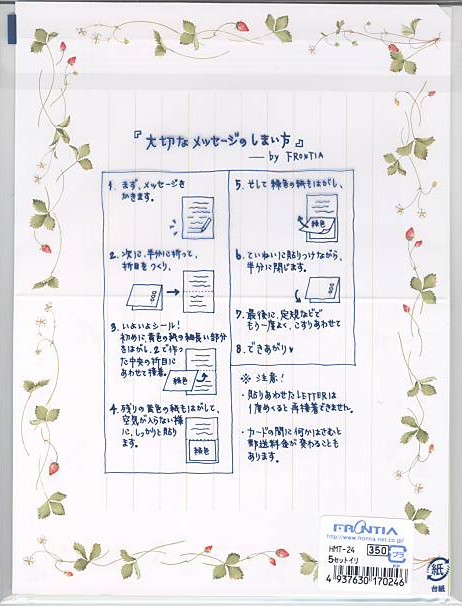 『大切なメッセージのしまい方』
— by FRONTIA
1. まず、メッセージを
かきます。
2. 次に、半分に折って、
折目をつくり、
3. いよいよシール!
初めに黄色の紙の細長い部分
をはがし、2で作っ
た中央の折目に
あわせて接着。
桃色
4. 残りの黄色の紙もはがして、
空気が入らない様
に、しっかりと貼り
ます。
桃色
5. そして緑色の紙もはがし、
桃色
6. ていねいに貼りつけながら、
半分に閉じます。
7. 最後に、定規などで
もう一度よく、こすりあわせて
8. できあがり♥
※ 注意!
・貼りあわせたLETTERは
1度めくると再接着できません。
・カードの間に何かはさむと
郵送料金が変わることも
あります。
FRONTIA
http://www.frontia-net.co.jp/
HMT-24
350
プラ
5セットイリ
4 937630 170246
紙
台紙